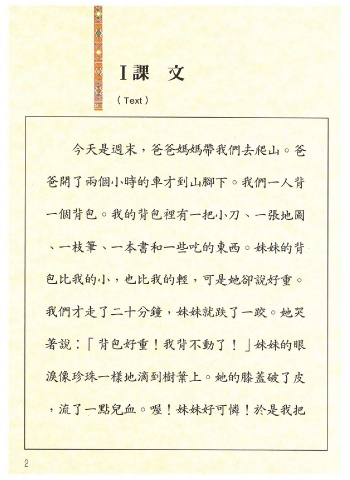 I 課 文
（Text）
今天是週末，爸爸媽媽帶我們去爬山。爸
爸開了兩個小時的車才到山腳下。我們一人背
一個背包。我的背包裡有一把小刀、一張地圖
、一枝筆、一本書和一些吃的東西。妹妹的背
包比我的小，也比我的輕，可是她卻說好重。
我們才走了二十分鐘，妹妹就跌了一跤。她哭
著說：「背包好重！我背不動了！」妹妹的眼
淚像珍珠一樣地滴到樹葉上。她的膝蓋破了皮
，流了一點兒血。喔！妹妹好可憐！於是我把
2